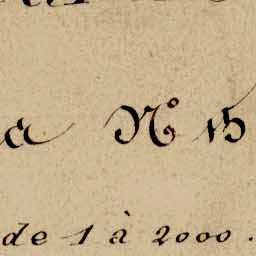 a Nº 15
de 1 à 2000.